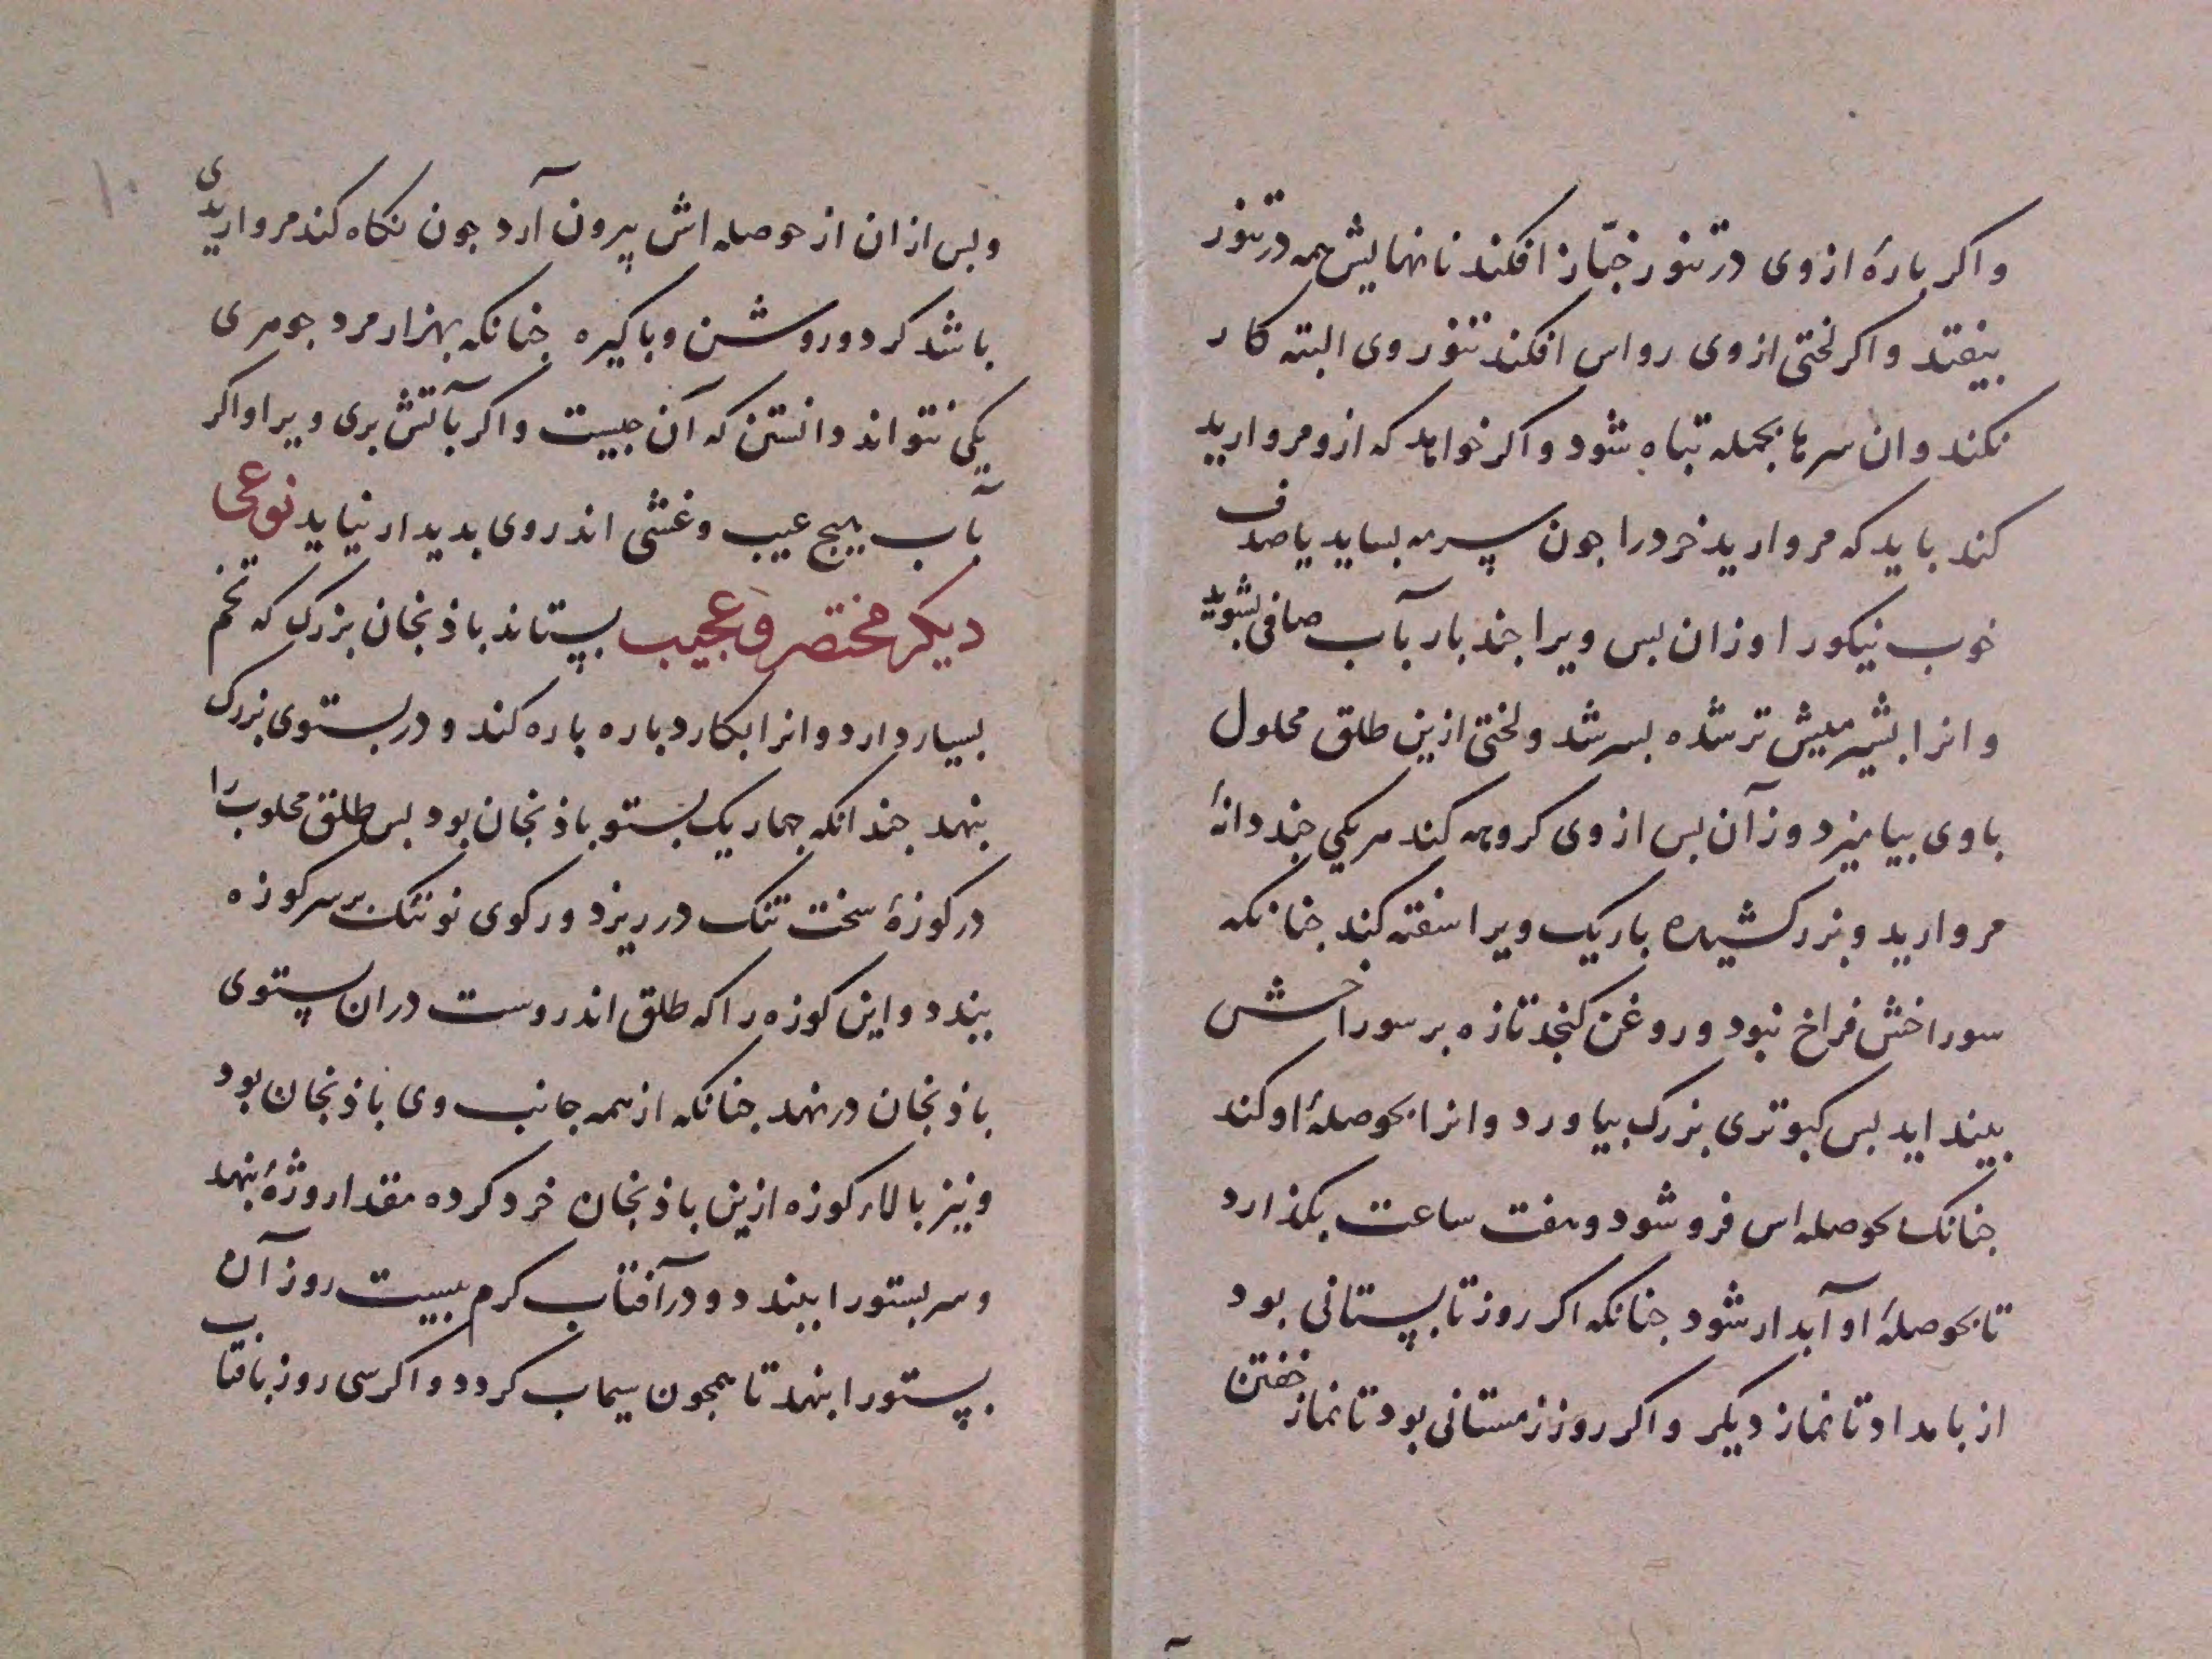 واکر بارهٔ ازوی در تنور خبّاز افکند نانهایش همه در تنور
بیفتد واکر لختی ازوی رواس افکند تنور وی البته کار
نکند وان سرها بجمله تباه شود واکر خواهد که ازو مروارید
کند باید که مروارید خرد را جون سرمه بساید یا صدف
خوب نیکو را وزان بس ویرا جند بار بآب صافی بشوید
وانرا بشیر میش ترشده بسرشد ولختی ازین طلق محلول
باوی بیامیزد وزآن بس ازوی کروهه کند هر یکی جند دانهٔ
مروارید وبزر کشیده باریک ویرا سفته کند جنانکه
سوراخش فراخ نبود وروغن کنجد تازه بر سوراخش
بینداید بس کبوتری بزرک بیاورد وانرا بحوصلهٔ او کند
جنانک بحوصله اس فرو شود وهفت ساعت بکذارد
تا بحوصلهٔ او آبدار شود جنانکه اکر روز تابستانی بود
از بامداد تا نماز دیکر واکر روز زمستانی بود تا نماز خفتن
۱۰
وبس ازان از حوصله اش بیرون آرد جون نکاه کند مرواریدی
باشد کرد وروشن وباکیزه جنانکه بهزار مرد جوهری
یکی نتواند دانستن که آن جیست واکر بآتش بری ویرا واکر
بآب هیج عیب وغشی اندروی بدیدار نیاید نوعی
دیکر مختصر وعجیب بستاند باذنجان بزرک که تخم
بسیار دارد وانرا بکارد باره باره کند ودر بستوی بزرک
بنهد جندانکه جهار یک بستو باذنجان بود بس طلق محلوب را
در کوزهٔ سخت تنک در ریزد ورکوی نو تنک بر سر کوزه
ببندد واین کوزه را که طلق اندروست دران بستوی
باذنجان در نهد جنانکه از همه جانب وی باذنجان بود
ونیز بالاء کوزه ازین باذنجان خرد کرده مقدار وژهٔ بنهد
وسر بستو را ببندد ودر آفتاب کرم بیست روز آن
بستو را بنهد تا همجون سیماب کردد واکر سی روز بافتاب